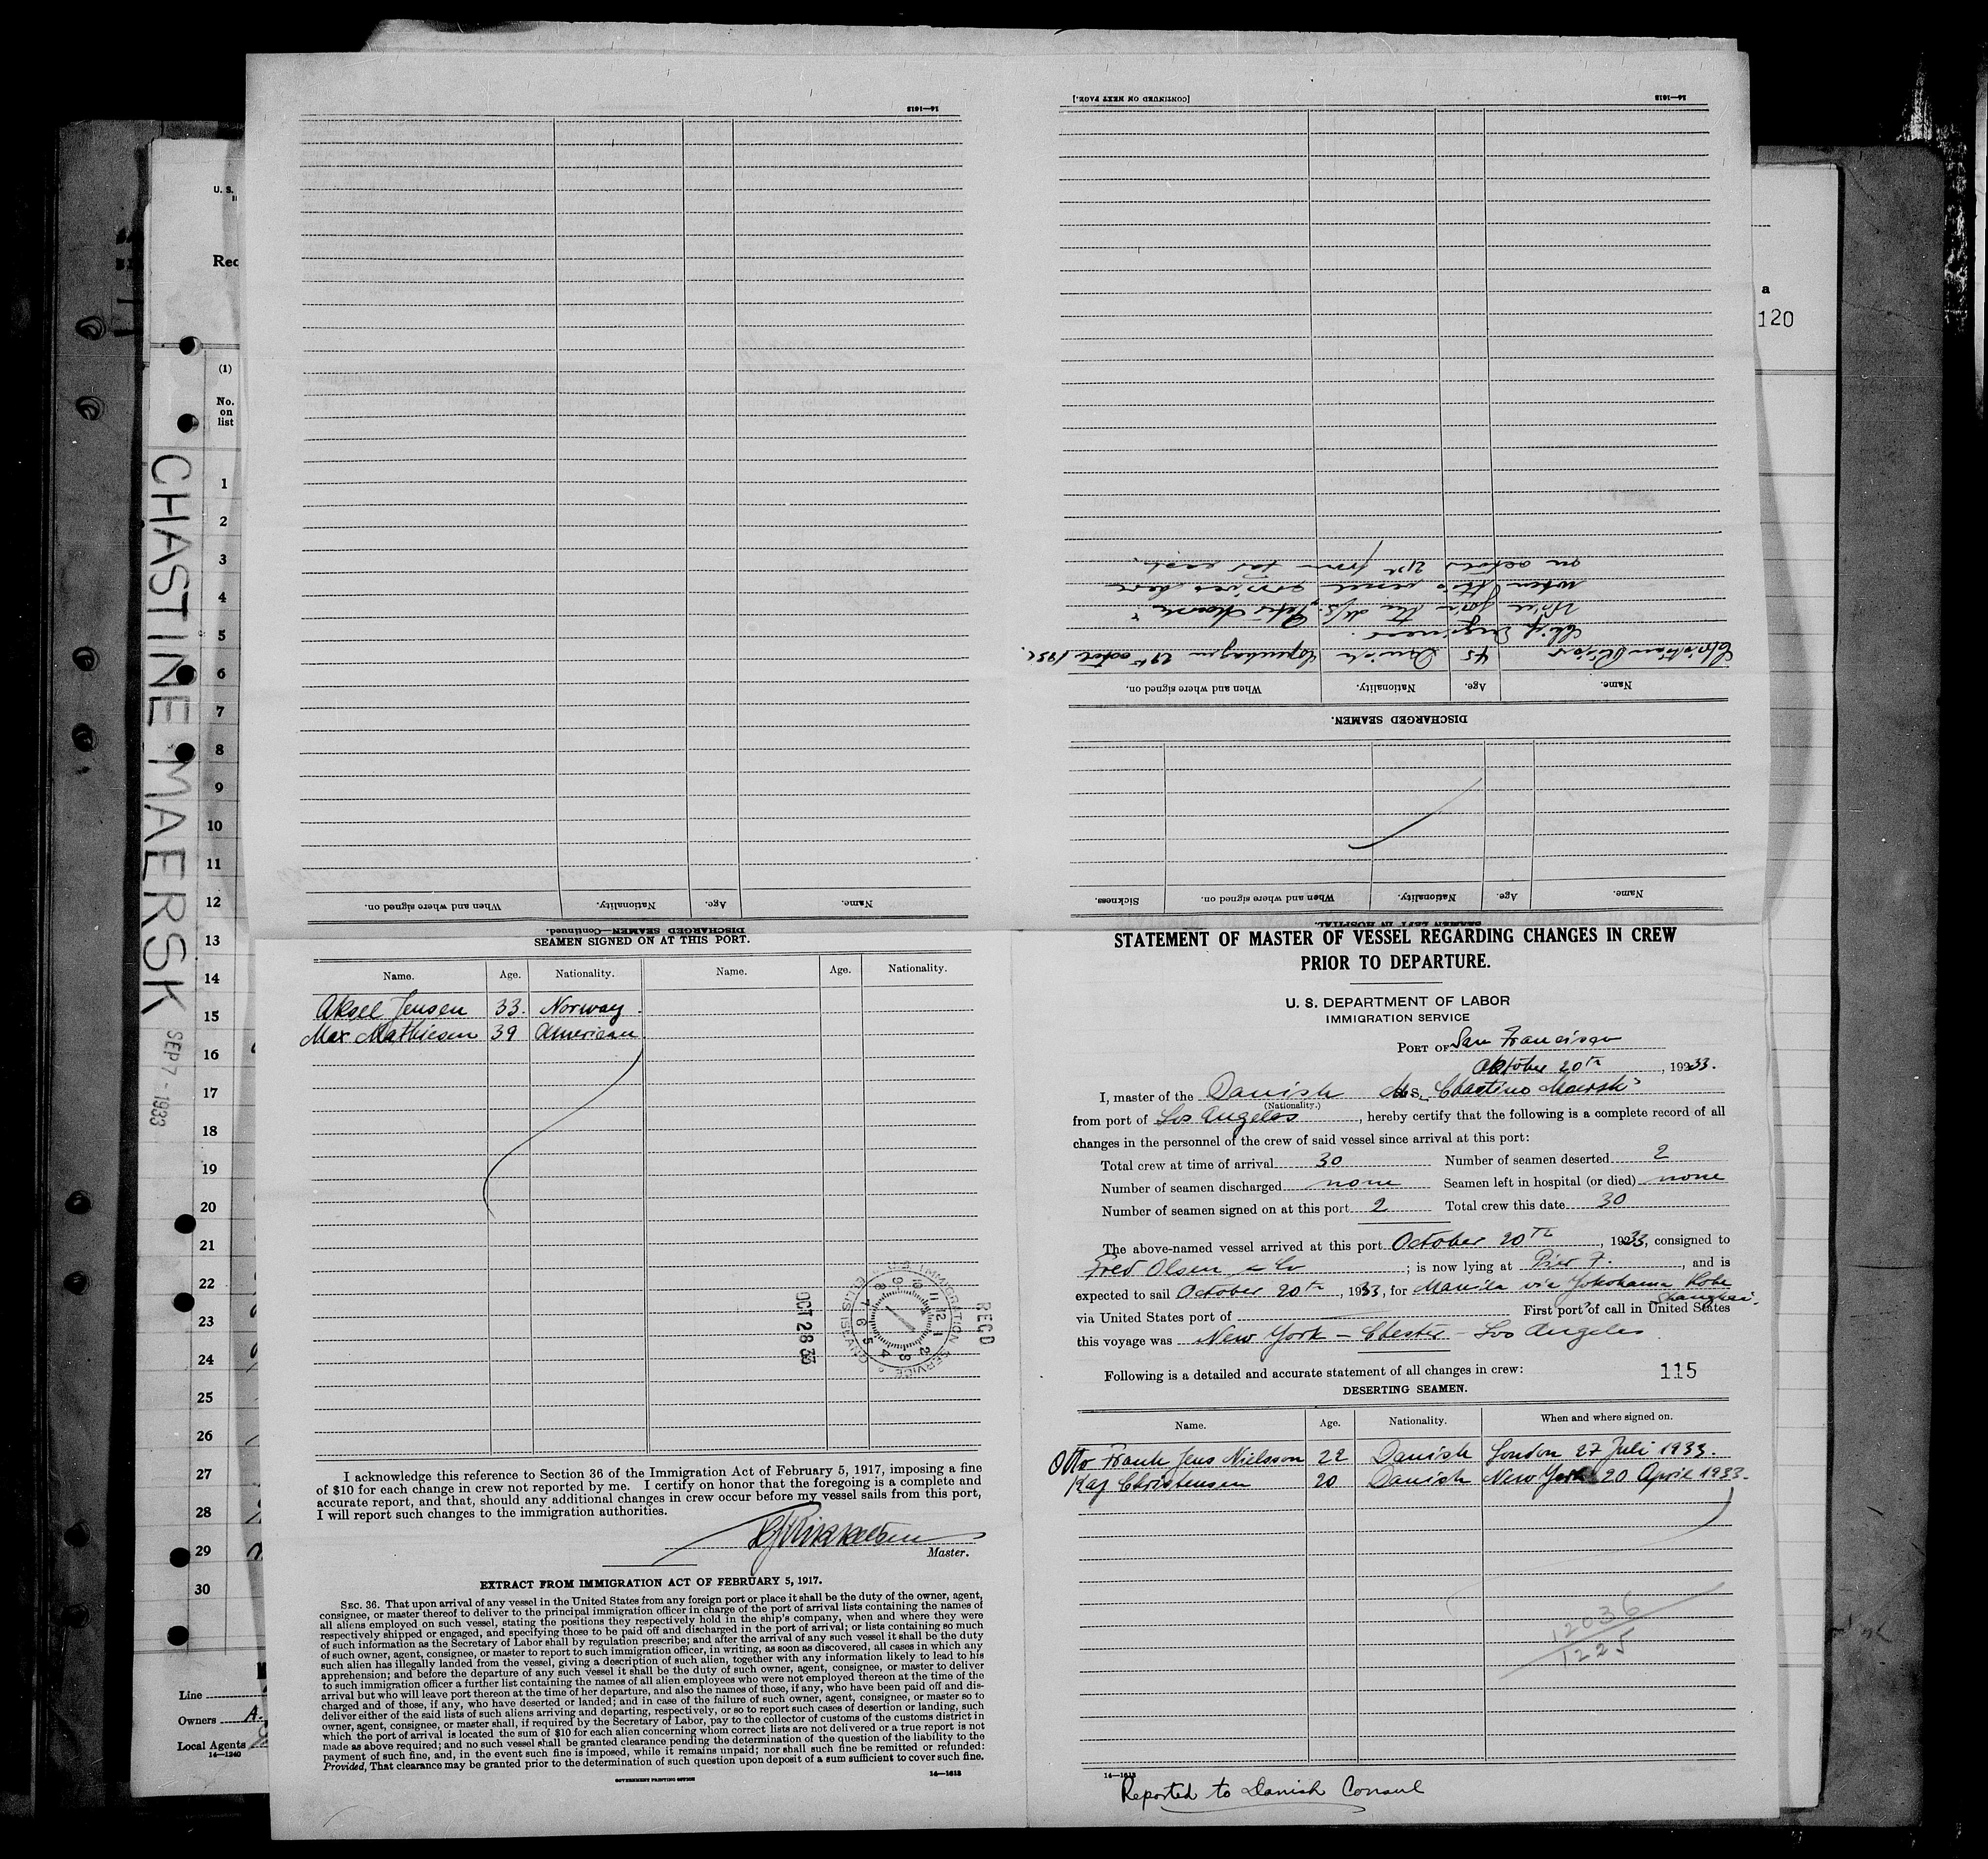 U. S.
Rec
(1)
No.
on
list
1
2
3
4
5
6
7
8
9
10
11
12
13
14
15
16
17
18
19
20
21
22
23
24
25
26
27
28
29
30
Line
Owners A.
Local Agents
14—1240
CHASTINE MAERSK SEP 7 - 1933
a
120
14—1613
DISCHARGED SEAMEN—Continued.
Name. Age. Nationality. When and where signed on.
SEAMEN LEFT IN HOSPITAL.
Name. Age. Nationality. When and where signed on. Sickness.
DISCHARGED SEAMEN.
Name. Age. Nationality. When and where signed on.
Christian 45 Danish Copenhagen 29th
Chief Engineer.
Will join the M/S
when this vessel arrives here
on 21st from far east.
[CONTINUED ON NEXT PAGE.]
14—1613
SEAMEN SIGNED ON AT THIS PORT.
Name. Age. Nationality. Name. Age. Nationality.
Aksel Jensen 33. Norway.
Max Mathiesen 39 American
U. S. IMMIGRATION SERVICE
10 11 12 1 2 3 4 5 6 7 8 9
REC'D
OCT 28 33
I acknowledge this reference to Section 36 of the Immigration Act of February 5, 1917, imposing a fine
of $10 for each change in crew not reported by me. I certify on honor that the foregoing is a complete and
accurate report, and that, should any additional changes in crew occur before my vessel sails from this port,
I will report such changes to the immigration authorities.
Master.
EXTRACT FROM IMMIGRATION ACT OF FEBRUARY 5, 1917.
SEC. 36. That upon arrival of any vessel in the United States from any foreign port or place it shall be the duty of the owner, agent,
consignee, or master thereof to deliver to the principal immigration officer in charge of the port of arrival lists containing the names of
all aliens employed on such vessel, stating the positions they respectively hold in the ship's company, when and where they were
respectively shipped or engaged, and specifying those to be paid off and discharged in the port of arrival; or lists containing so much
of such information as the Secretary of Labor shall by regulation prescribe; and after the arrival of any such vessel it shall be the duty
of such owner, agent, consignee, or master to report to such immigration officer, in writing, as soon as discovered, all cases in which any
such alien has illegally landed from the vessel, giving a description of such alien, together with any information likely to lead to his
apprehension; and before the departure of any such vessel it shall be the duty of such owner, agent, consignee, or master to deliver
to such immigration officer a further list containing the names of all alien employees who were not employed thereon at the time of the
arrival but who will leave port thereon at the time of her departure, and also the names of those, if any, who have been paid off and dis-
charged and of those, if any, who have deserted or landed; and in case of the failure of such owner, agent, consignee, or master so to
deliver either of the said lists of such aliens arriving and departing, respectively, or so to report such cases of desertion or landing, such
owner, agent, consignee, or master shall, if required by the Secretary of Labor, pay to the collector of customs of the customs district in
which the port of arrival is located the sum of $10 for each alien concerning whom correct lists are not delivered or a true report is not
made as above required; and no such vessel shall be granted clearance pending the determination of the question of the liability to the
payment of such fine, and, in the event such fine is imposed, while it remains unpaid; nor shall such fine be remitted or refunded:
Provided, That clearance may be granted prior to the determination of such question upon deposit of a sum sufficient to cover such fine.
GOVERNMENT PRINTING OFFICE 14—1613
STATEMENT OF MASTER OF VESSEL REGARDING CHANGES IN CREW
PRIOR TO DEPARTURE.
U. S. DEPARTMENT OF LABOR
IMMIGRATION SERVICE
PORT OF San Francisco
Oktober 20th, 1933.
I, master of the Danish M S. Chastine Maersk
(Nationality.)
from port of Los Angeles, hereby certify that the following is a complete record of all
changes in the personnel of the crew of said vessel since arrival at this port:
Total crew at time of arrival 30 Number of seamen deserted 2
Number of seamen discharged none Seamen left in hospital (or died) none
Number of seamen signed on at this port 2 Total crew this date 30
The above-named vessel arrived at this port October 20th, 1933, consigned to
Fred Olsen & Co; is now lying at Pier 7., and is
expected to sail October 20th, 1933, for Manila via Yokohama Kobe
Shanghai.
via United States port of First port of call in United States
this voyage was New York - Chester - Los Angeles
Following is a detailed and accurate statement of all changes in crew: 115
DESERTING SEAMEN.
Name. Age. Nationality. When and where signed on.
Otto Frank Jens Nielsson 22 Danish London 27 Juli 1933.
Kaj Christensen 20 Danish New York 20 April 1933.
12036
1225
14—1613
Reported to Danish Consul